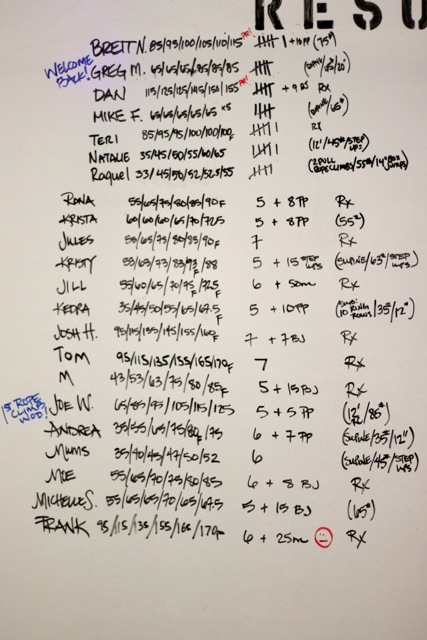 RESU
BRETT N. 85/95/100/105/110/115 PR! 卌 1 + 10PP (75#)
WELCOME BACK! GREG M. 卌
DAN 115/125/125/145/150/155 PR! 卌 + 9 Rx
MIKE F. 65/65/65/65/65 x5
TERI 85/95/95/100/100/102 卌 1 Rx
NATALIE 35/45/50/55/60/65 卌 1 (12"/45#/STEP UPS)
Raquel 卌
RONA 55/65/75/80/85/90F 5 + 8PP Rx
KRISTA 60/60/60/65/70/72.5 5 + 8PP (55#)
JULES 7 Rx
KRISTY 53/63/73/83/93F/88 5 + 15 STEP UPS (SUPINE/63#/STEP UPS)
JILL 55/60/65/70/75F/72.5F 6 + 50m Rx
KEDRA 35/45/50/55/65/67.5F 5 + 10PP (SUB: 10 RING ROWS/35/12")
JOSH H. 95/115/135/145/155/160F 7 + 7BJ Rx
TOM 95/115/135/155/165/170F 7 Rx
M 43/53/63/75/80/85F 5 + 15BJ Rx
15 ROPE CLIMBS WOD! JOE W. 65/85/95/105/115/125 5 + 5PP
ANDREA 35/55/65/75/80F/75 6 + 7PP (SUPINE/35#/12")
MUMS 35/40/45/47/50/52 6 (SUPINE/45#/STEP UPS)
MOE 55/65/70/75/80/85 6 + 8 BJ Rx
MICHELLE S. 55/65/65/70/65/67.5 5 + 15 BJ (65#)
FRANK 95/115/135/155/165/170F 6 + 25m Rx